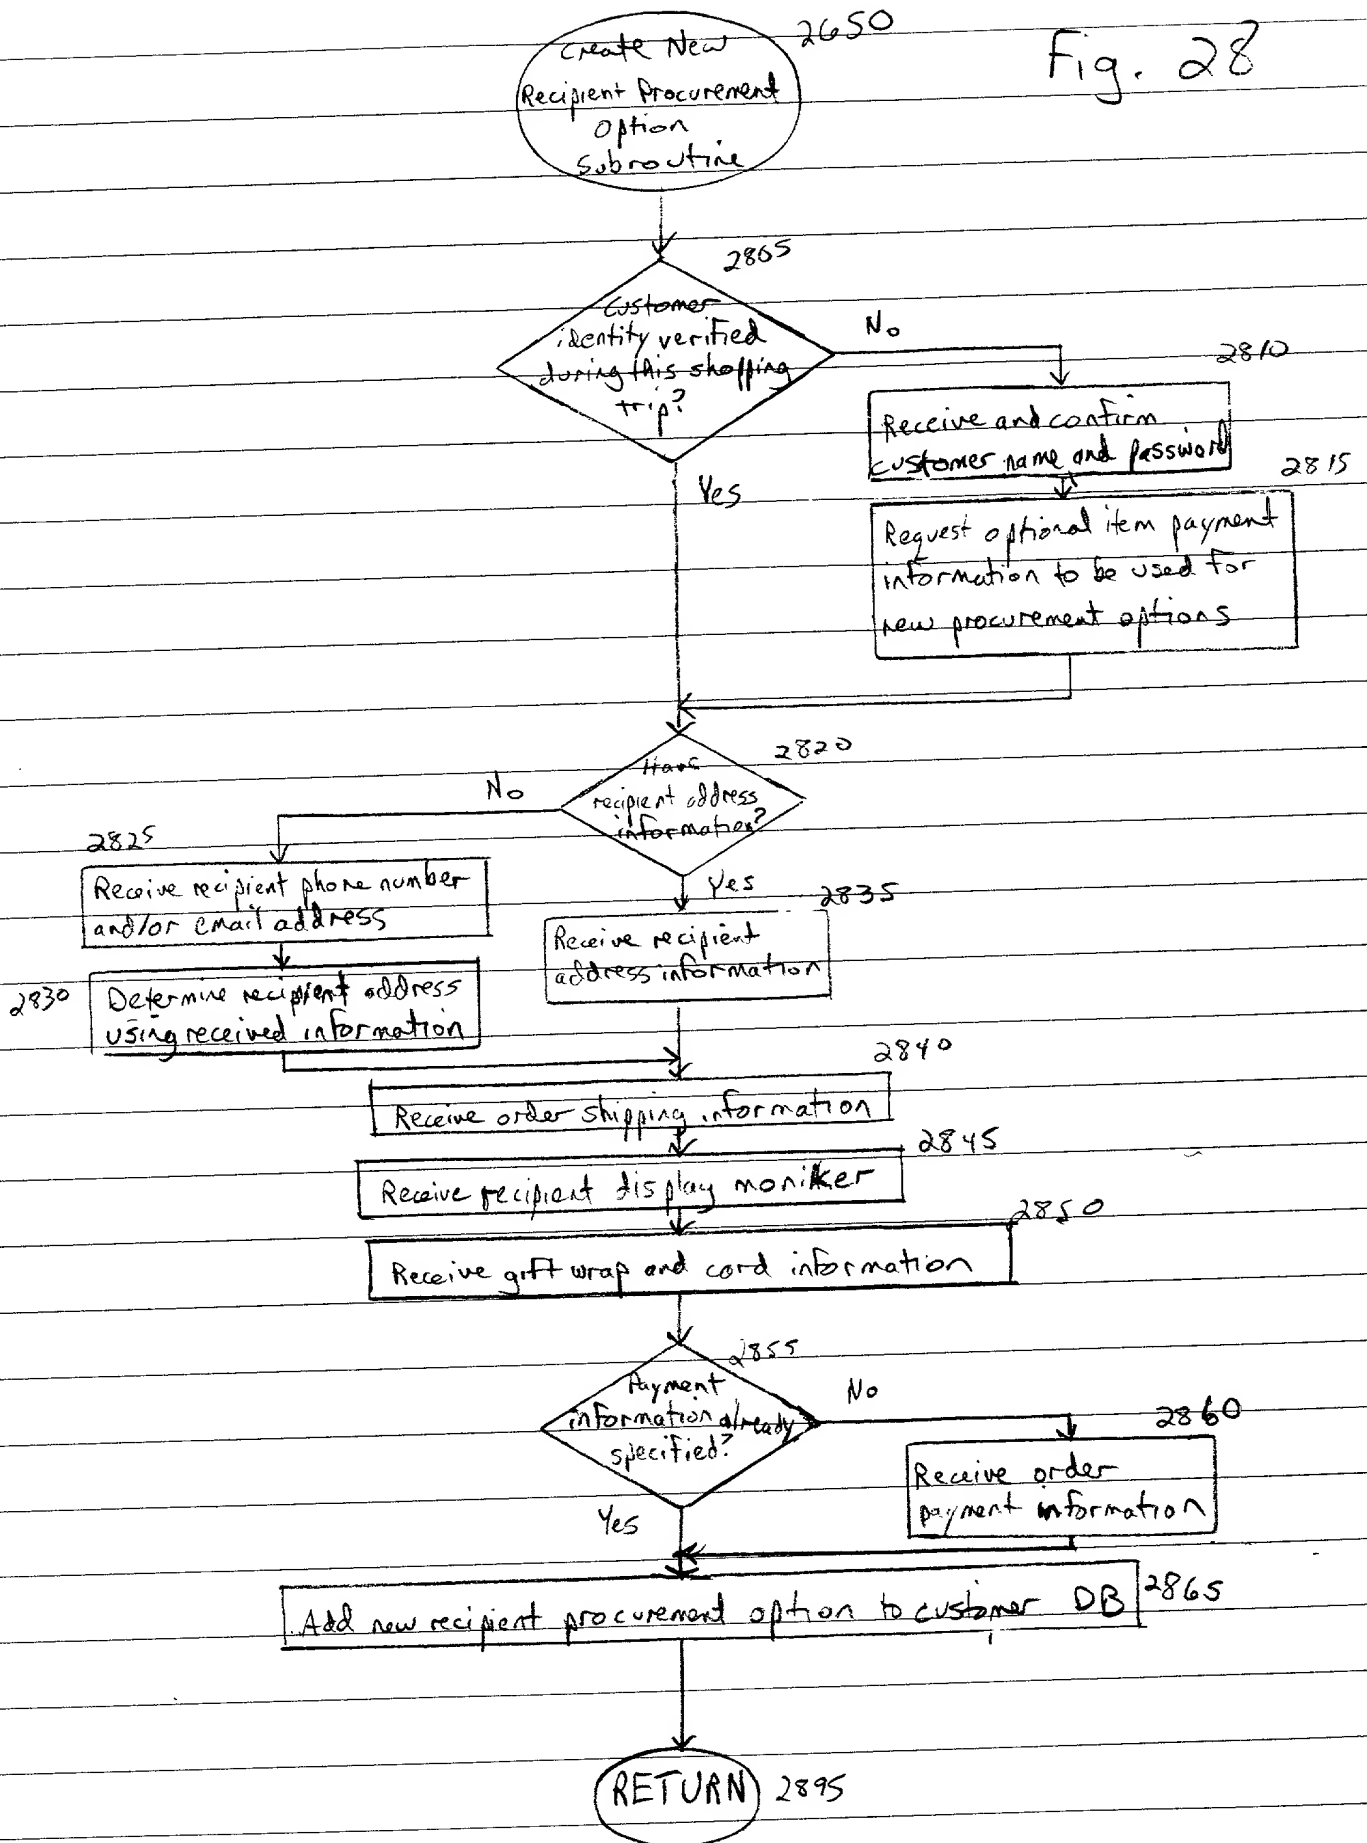 Fig. 28
2650
Create New
Recipient Procurement
Option
Subroutine
2805
Customer
identity verified
during this shopping
trip?
No
2810
Receive and confirm
customer name and password
Yes
2815
Request optional item payment
information to be used for
new procurement options
2820
Have
recipient address
information?
No
2825
Receive recipient phone number
and/or email address
Yes
2835
Receive recipient
address information
2830
Determine recipient address
using received information
2840
Receive order shipping information
2845
Receive recipient display moniker
2850
Receive gift wrap and card information
2855
Payment
information already
specified?
No
2860
Receive order
payment information
Yes
Add new recipient procurement option to customer DB
2865
RETURN
2895